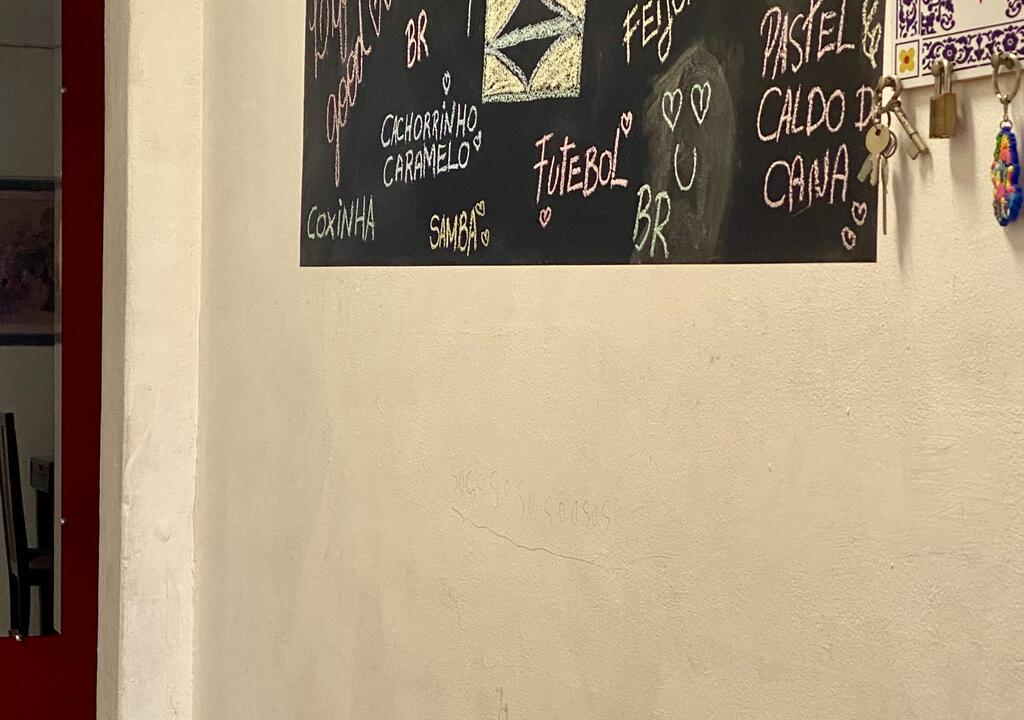 BR
CACHORRINHO
CARAMELO
COXINHA
SAMBA
FUTEBOL
BR
PASTEL
CALDO D
CANA